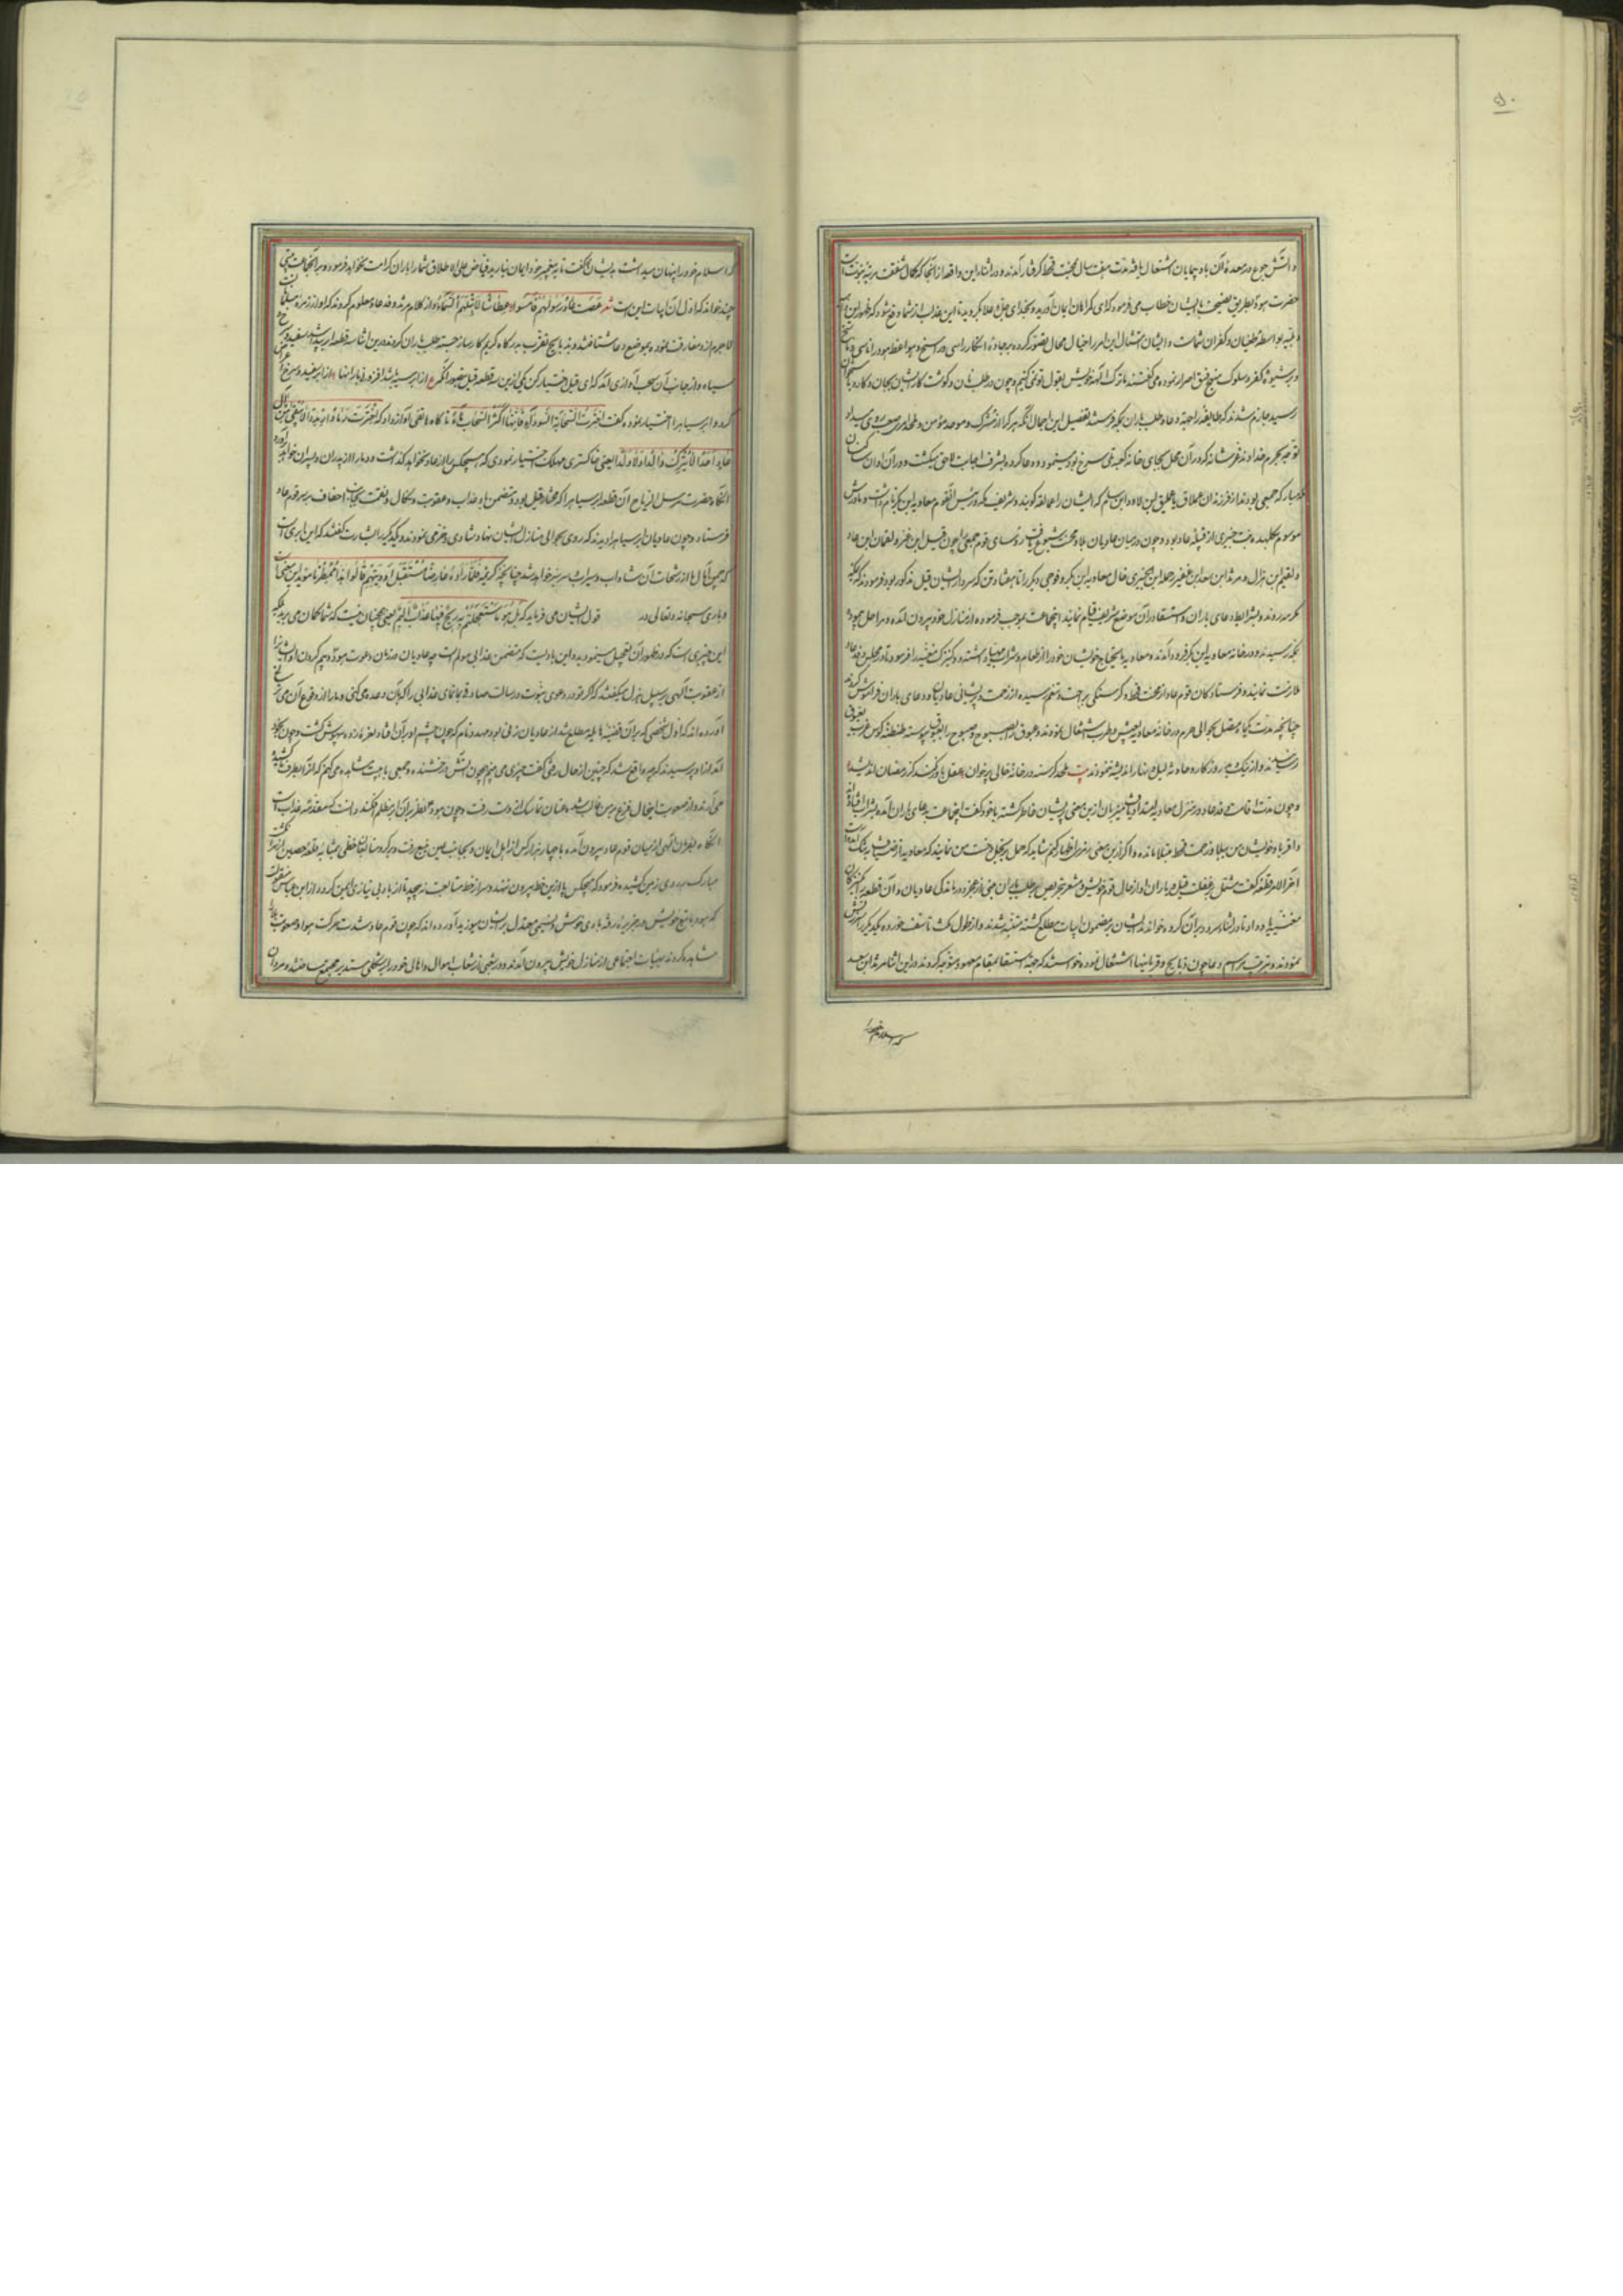 ۵۰
و آتش جوع در معده آن بادپیمایان اشتعال یافته مدت هفت سال بمحنت قحط گرفتار آمدند و در اثنای این واقعه از آنجا که کمال شفقت مرتبه نبوت است
حضرت هود بطریق نصیحت بایشان خطاب می فرمود که ای گمراهان ایمان آورید و بخدای جل و علا بگروید تا این عذاب از شما دفع شود که ظهور این
بواسطه طغیان و کفران شماست و ایشان امتثال این امر را خیال محال تصور کرده بر جاده انکار راسخ و مواعظ هود را ناسخ
و بر شیوه کفر و سلوک منهج فسق اصرار نموده می گفتند ما ترک آلهه خویش بقول تو نمی کنیم و چون در طلب نان و گوشت کار ایشان بجان و کارد
رسید جازم شدند که طایفه را جهة دعاء طلب باران بمکه فرستند تفصیل این اجمال آنکه هر کرا از مشرک و موحد و مؤمن و ملحد امری صعب روی میداد
توجه بحرم خداوند فرستانه کرد و در آن محل بجای خانه کعبه تلی سرخ بود مینمود و دعا کرده بشرف اجابت لاحق میگشت و در آن اوان
مبارکه جمعی بودند از فرزندان عملاق یا عملیق ابن لاود ابن سام که ایشان را عمالقه گویند و شریف مکه و رئیس آن قوم معاویه ابن بکر نام داشت و مادرش
موسوم بکلهده بنت خیبری از قبیله عاد بود و چون در میان عادیان بلا و محنت شیوع یافت رؤسای قوم جمعی را چون قیل ابن عنز و لقمان ابن عاد
و لقیم ابن هزال و مرثد ابن سعد ابن عفیر و جلهمه ابن خیبری خال معاویه ابن بکر و فوجی دیگر را تا هفتاد تن که سردار ایشان قیل مذکور بود فرمودند که
مکرمه روند و بشرایط دعای باران و استسقا در آن موضع شریف قیام نمایند آنجماعت بموجب فرموده از منازل خود بیرون آمده و مراحل پیموده
بمکه رسیدند و در خانه معاویه ابن بکر فرود آمدند و معاویه ما یحتاج خویشان خود را از طعام و شراب مهیا داشته و دو کنیزک مغنیه را فرمود تا در مجلس وفد عاد
ملازمت نمایند و فرستادگان قوم عاد از محنت قحط و گرسنگی براحت و تنعم رسیده از زحمت و پریشانی عادیان و دعای باران فراموش کردند
چنانچه مدت یکماه متصل بحوالی حرم در خانه معاویه بعیش و طرب اشتغال نمودند و غبوق بصبوح و صبوح را بغبوق پیوسته طنطنه کوس
رسانیدند و از نیک و بد روزگار و حادثه لیل و نهار اندیشه ننمودند بیت ملحد گرسنه در خانه خالی بر خوان عقل باور نکند کز رمضان اندیشد
و چون مدت اقامت وفد عاد در منزل معاویه امتداد یافت میزبان از این معنی پریشان خاطر گشته با خود گفت اینجماعت بدعای باران آمده
و اقربا و خویشان من ببلا و زحمت قحط مبتلا مانده و اگر ازین معنی رمزی اظهار کنم شاید که حمل بر بخل و خست من نمایند
آخر الامر قطعه گفت مشتمل بر غفلت قیل و یاران او از حال قوم خویش و مشعر بتحریص بر طلب باران مبنی از عجز و درماندگی عادیان و آن قطعه را بکنیزکان
مغنیه یاد داد تا در اثنای سرود بر آن گروه خواندند ایشان بر مضمون ابیات مطلع گشته متنبه شدند و از طول مکث تأسف خورده یکدیگر را سرزنش
نمودند و بترتیب مراسم دعا چون ذبایح و قربانیها اشتغال نموده خواستند که جهة استسقا بمقام معهود متوجه گردند در این اثنا مرثد ابن سعد
که اسلام خود را
که اسلام خود را پنهان میداشت بدیشان گفت تا به پیغمبر خود ایمان نیارید فیاض علی الاطلاق شما را باران کرامت نخواهد فرمود و بر آنجماعت بیتی
چند خواند که اول آن ابیات این است شعر عَصَتْ عادٌ رَسُولَهُمْ فَأَمْسَوْا عِطاشاً لا تَبُلُّهُمُ السَّماءُ و از کلام مرثد وفد عاد معلوم کردند که او از زمره مسلمانان است
لاجرم از او مفارقت نموده بموضع دعا شتافتند و بذبایح تقرب بدرگاه کریم کارساز جسته طلب باران کردند در این اثنا سه قطعه ابر پدید شد سفید و سرخ و
سیاه و از جانب آن سحب آوازی آمد که ای قیل اختیار کن یکی ازین سه قطعه قیل تصور آنکه ع از ابر سیه شد افزون باران‌ها از ابر سفید و سرخ اعراض
کرد و ابر سیاه را اختیار نموده گفت اخترت السحابة السوداء فانها اکثر السحاب ماءً ناگاه هاتفی آواز داد که اخترت رماداً ارمدا لا تبقی من آل
عاد احدا لا تترک والدا و لا ولدا یعنی خاکستری مهلک اختیار نمودی که هیچکس را از عاد نخواهد گذاشت و دمار از پدران و پسران خواهد آورد
آنگاه حضرت مرسل الریاح آن قطعه ابر سیاه را که مختار قیل بود و متضمن باد عذاب و عقوبت و نکال و نقمت بجانب احقاف بر سر قوم عاد
فرستاد و چون عادیان ابر سیاه را دیدند که روی بحوالی منازل ایشان نهاد شادی و خرمی نمودند و یکدیگر را بشارت گفتند که این ابری است
که چمن آمال ما از رشحات آن شاداب و سیراب و سرسبز خواهد شد چنانچه کریمه فَلَمَّا رَأَوْهُ عارِضاً مُسْتَقْبِلَ أَوْدِیَتِهِمْ قالُوا هذا عارِضٌ مُمْطِرُنا مؤید این معنی است
و باری سبحانه و تعالی در قول ایشان می فرماید که بَلْ هُوَ مَا اسْتَعْجَلْتُمْ بِهِ رِیحٌ فِیها عَذابٌ أَلِیمٌ یعنی چنان نیست که شما گمان می برید بلکه
این چیزی است که در ظهور آن تعجیل مینمودید و این بادیست که متضمن عذابی مولم است چه عادیان در زمان دعوت هود و بیم کردن او ایشان را
از عقوبت الهی بر سبیل هزل میگفتند که اگر تو در دعوی نبوت و رسالت صادقی بما نمای عذابی را که بآن وعده می کنی و ما را از وقوع آن می ترسانی
آورده اند که اول شخصی که بر آن قضیه هایله مطلع شد از عادیان زنی بود مهدد نام که چون چشم او بر آن افتاد نعره زد و بیهوش گشت و چون بخود
آمد از او پرسیدند که چه واقع شد که چنین از حال رفتی گفت چیزی می بینم چون آتش درخشنده و جمعی با هیبت مشاهده می کنم که آنرا بطرف ما کشیده
می آرند و از صعوبت این حال فزع بر من غالب شده عنان تماسک از دست رفت و چون هود را نظر بر آن ابر مظلم افکند دانست که مقدمه عذاب است
آنگاه بفرمان الهی از میان قوم عاد بیرون آمده با چهار هزار کس از اهل ایمان بجانب امن رفت و بر گرد ایشان خطی بمثابه قلعه حصین از انگشت
مبارک بر روی زمین کشیده فرمود که هیچکس پا ازین خط بیرون ننهد و سر از خط متابعت نپیچد تا از باد بی نیازی ایمن گردد از ابن عباس منقول است
که هود با تبع خویش در حظیره رفته بادی خوش و نسیمی معتدل بر ایشان میوزید آورده اند که چون قوم عاد شدت حرکت هوا و صعوبت باد
مشاهده کردند بهیئات اجتماعی از منازل خویش بیرون آمدند و در شعبی از شعاب اموال و اهل خود را بر محکمی جمع ساختند و مردان